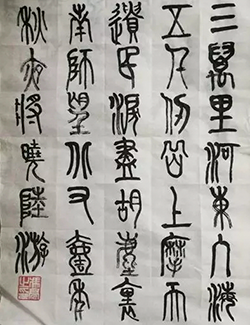 三萬里河東入海
五千仞岳上摩天
遺民淚盡胡塵裏
南師望又壹年
秋夜將曉陸游